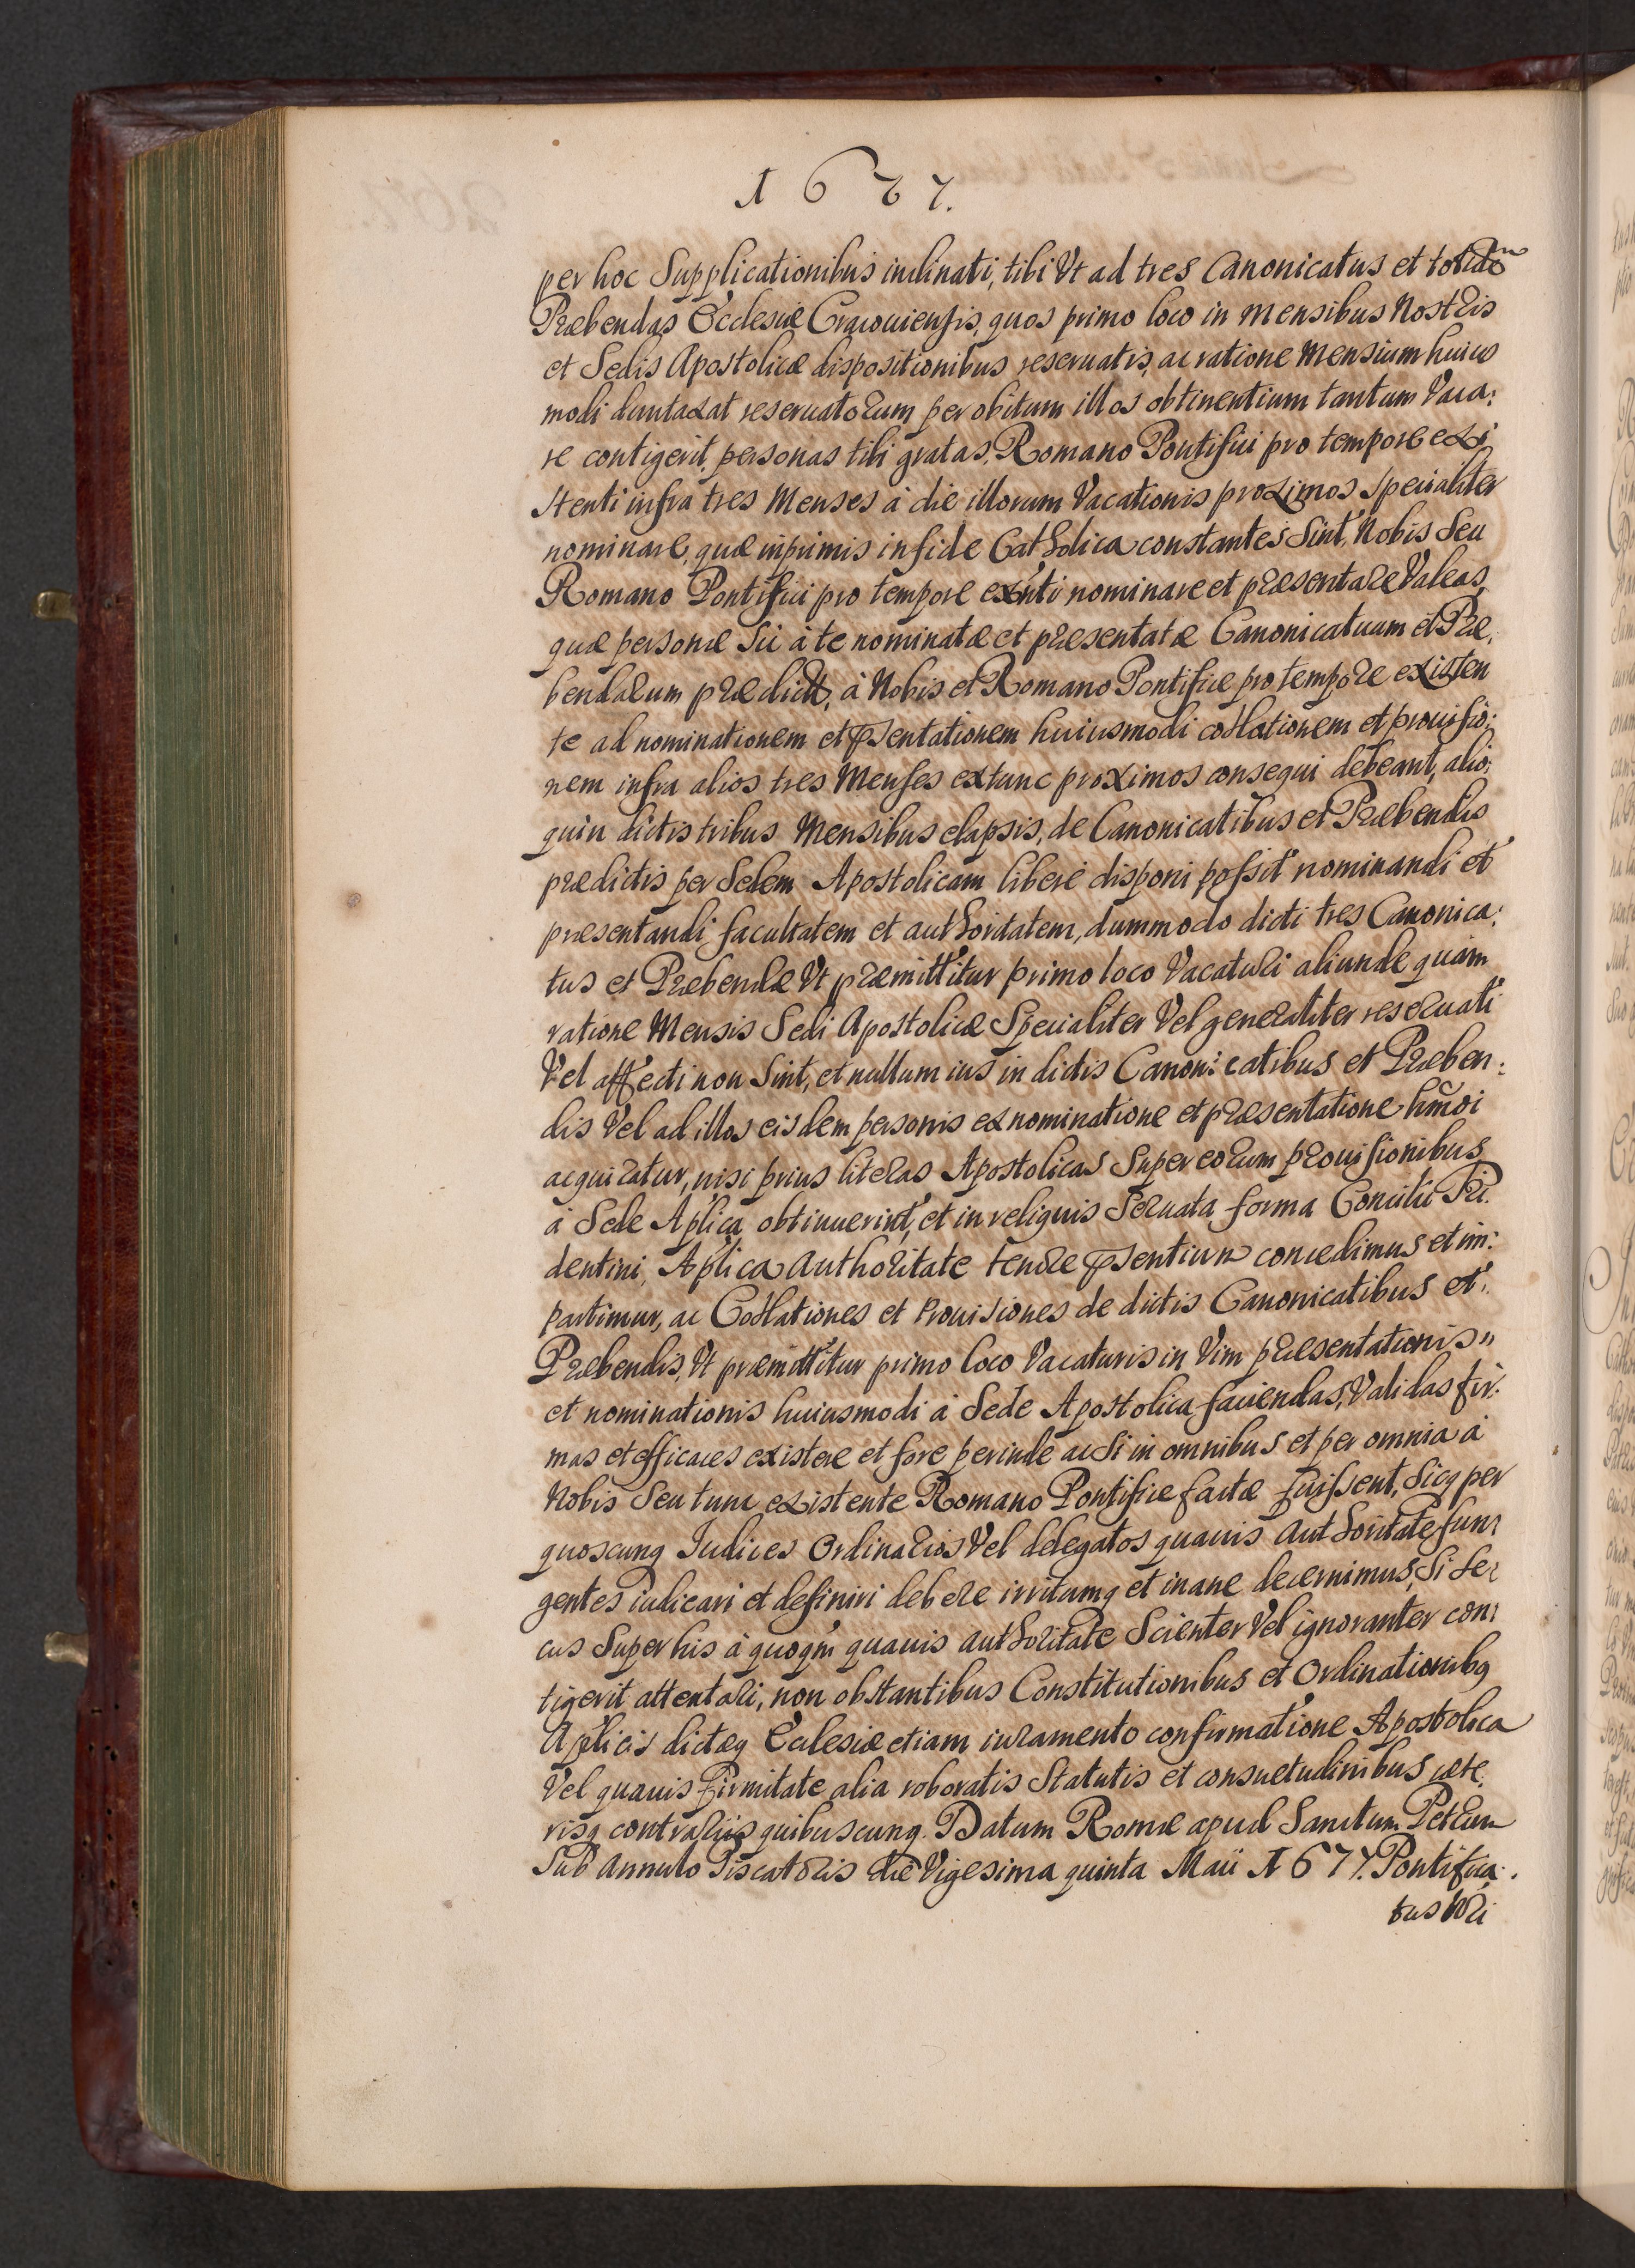 1677.
per hoc Supplicationibus inclinati, tibi Vt ad tres Canonicatus et totidem
Præbendas Ecclesiæ Cracouiensis, quos primo loco in Mensibus Nostris
et Sedis Apostolicæ dispositionibus reseruatis, ac ratione Mensium huius
modi duntaxat reseruatorum per obitum illos obtinentium tantum Vaca:
re contigerit, personas tibi gratas, Romano Pontifici pro tempore exi:
stenti infra tres Menses à die illorum Vacationis proximos specialiter
nominare, quæ inprimis in fide Catholica constantes Sint, Nobis Seu
Romano Pontifici pro tempore exnti nominare et præsentare Valeas,
quæ personæ Sic à te nominatæ et præsentatæ Canonicatuum et Præ,
bendarum prædict, à Nobis et Romano Pontifice pro tempore existen
te ad nominationem et pñsentationem huiusmodi collationem et prouisio:
nem infra alios tres Menses extunc proximos consequi debeant, alio:
quin dictis tribus Mensibus elapsis, de Canonicatibus et Præbendis
prædictis per Sedem Apostolicam liberè disponi possit nominandi et
præsentandi facultatem et authoritatem, dummodo dicti tres Canonica:
tus et Præbendæ Vt præmittitur primo loco Vacaturi aliunde quàm
ratione Mensis Sedi Apostolicæ Specialiter Vel generaliter reseruati
Vel affecti non Sint, et nullum ius in dictis Canonicatibus et Præben:
dis Vel ad illos eisdem personis ex nominatione et præsentatione hmõi
acquiratur, nisi prius literas Apostolicas Super eorum prouisionibus
à Sede Aplica obtinuerint, et in reliquis Seruata forma Concilii Tri.
dentini, Aplica Authoritate tenore pñsentium concedimus et im:
partimur, ac Collationes et Prouisiones de dictis Canonicatibus et
Præbendis, Vt præmittitur primo loco Vacaturis in Vim præsentationis
et nominationis huiusmodi à Sede Apostolica faciendas, Validas fir:
mas et efficaces existere et fore perinde acsi in omnibus et per omnia à
Nobis Seu tunc existente Romano Pontifice factæ fuissent, Sicq per
quoscunq Iudices Ordinarios Vel delegatos quauis Authoritate fun:
gentes iudicari et definiri debere irritumq et inane decernimus, Si se:
cus Super his à quoqm quauis authoritate Scienter Vel ignoranter con:
tigerit attentari, non obstantibus Constitutionibus et Ordinationibq
Aplicis dictæq Ecclesiæ etiam iuramento confirmatione Apostolica
Vel quauis firmitate alia roboratis Statutis et consuetudinibus cæte,
risq contrariis quibuscunq. Datum Romæ apud Sanctum Petrum
Sub Annulo Piscatoris die Vigesima quinta Maii 1677. Pontifica:
tus Nri